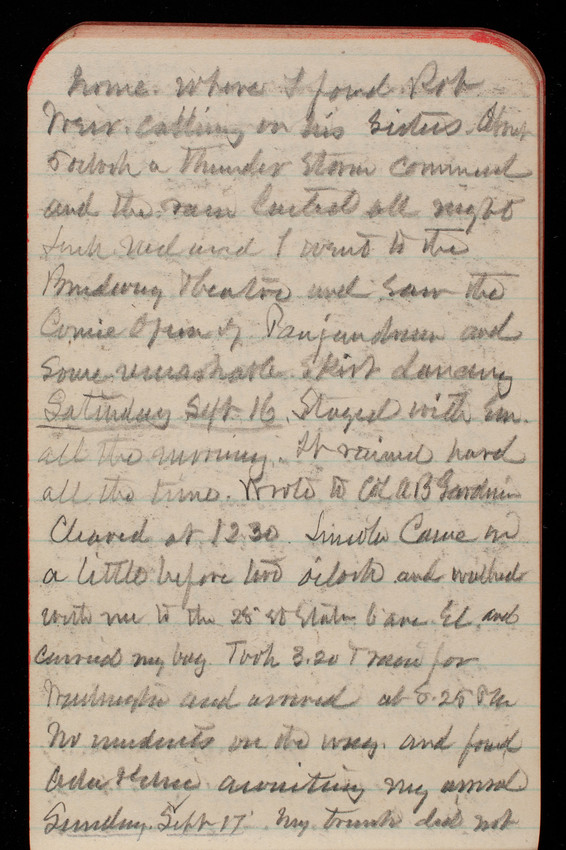 home. where I found Rob
Weir calling on his Sisters. About
5 oclock a Thunder Storm commenced
and the rain lasted all night
Jack Ned and I went to the
Broadway Theatre and Saw the
Comic Opera of Panjandrum and
Some remarkable Skirt dancing
Saturday Sept 16. Stayed with Em.
all the morning. It rained hard
all the time. Wrote to Col A B Gardiner
Cleared at 12 30. Lincoln Came in
a little before two oclock and walked
with me to the 28 st Station 6 ave El. and
carried my bag. Took 3.20 Train for
Washington and arrived at 8.25 PM
No incidents on the way. and found
awaiting my arrival
Sunday. Sept 17. My trunk did not